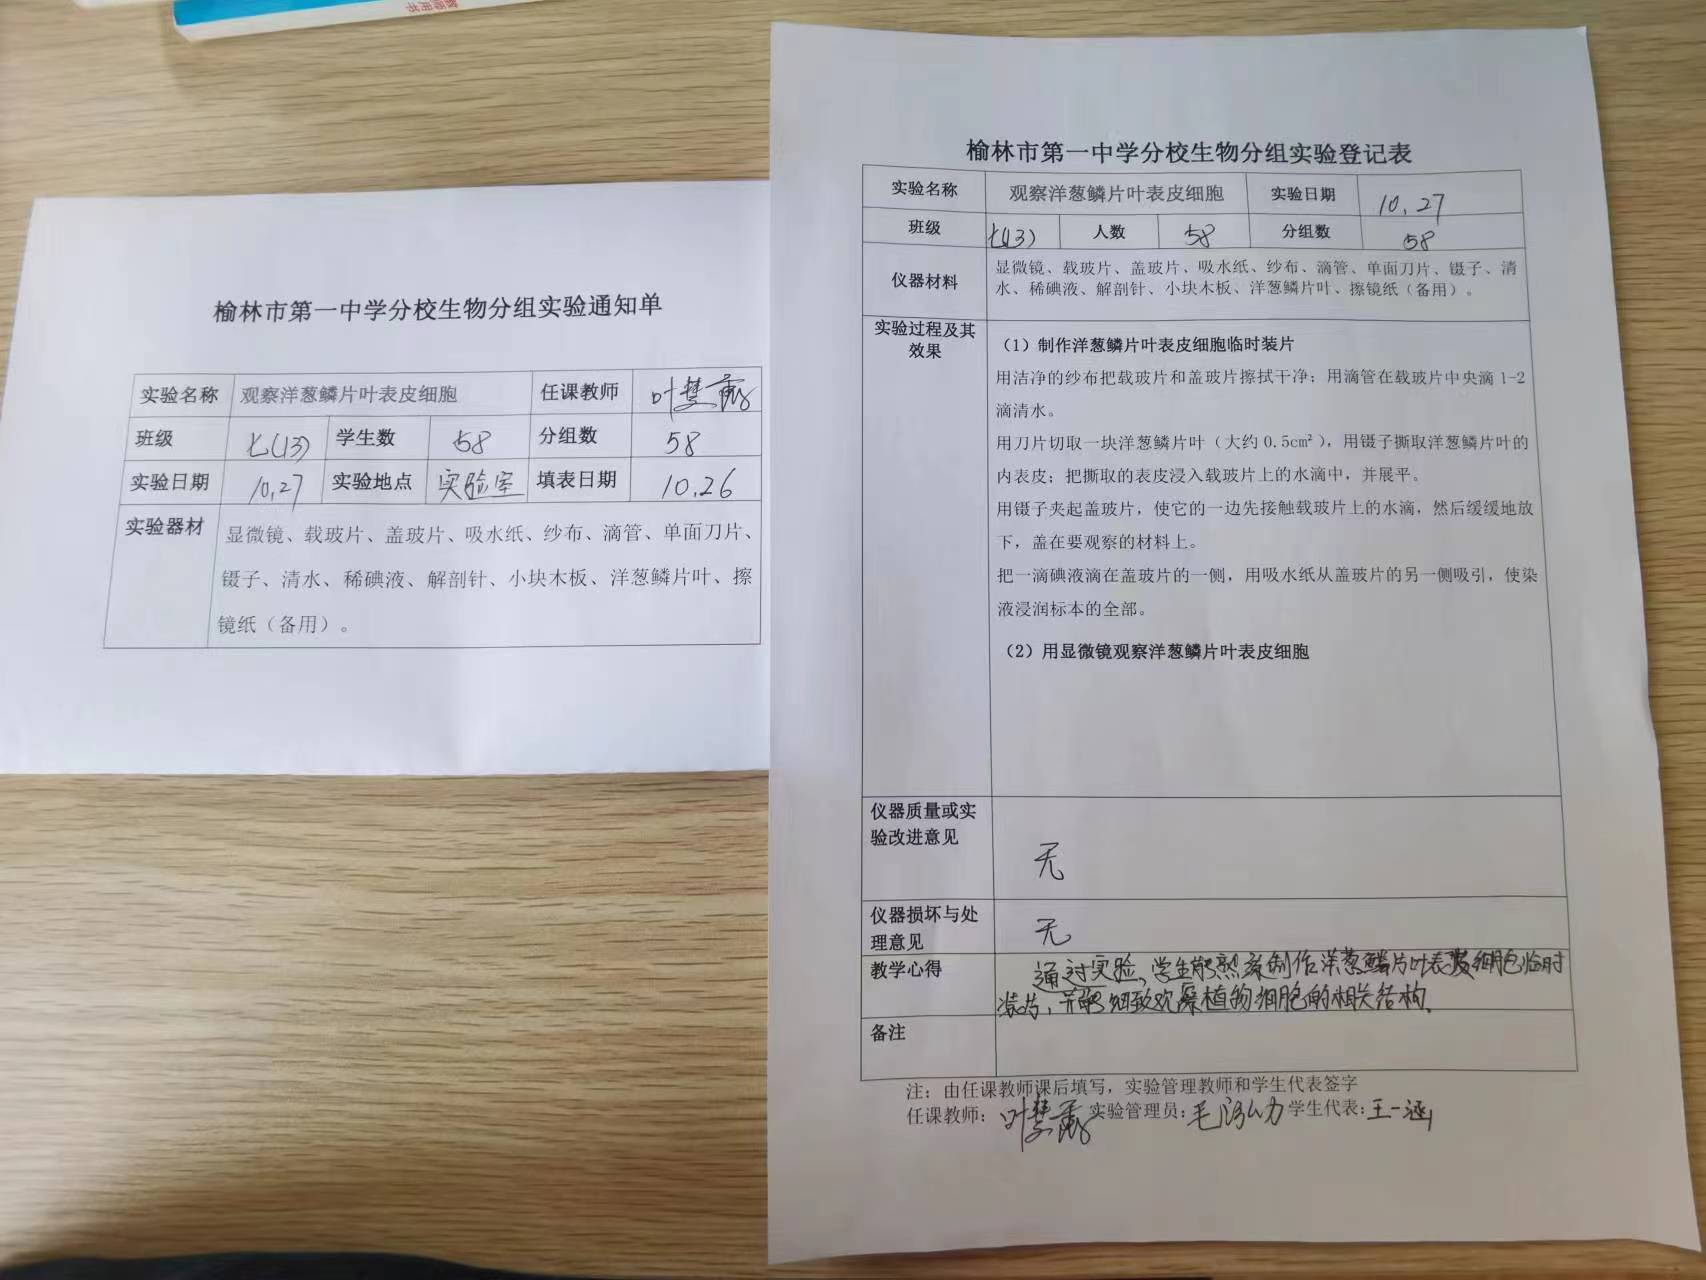 教师用书
榆林市第一中学分校生物分组实验通知单
实验名称 观察洋葱鳞片叶表皮细胞 任课教师 叶慧
班级 七(13) 学生数 58 分组数 58
实验日期 10.27 实验地点 实验室 填表日期 10.26
实验器材 显微镜、载玻片、盖玻片、吸水纸、纱布、滴管、单面刀片、
镊子、清水、稀碘液、解剖针、小块木板、洋葱鳞片叶、擦
镜纸（备用）。
榆林市第一中学分校生物分组实验登记表
实验名称 观察洋葱鳞片叶表皮细胞 实验日期 10.27
班级 七(13) 人数 58 分组数 58
仪器材料 显微镜、载玻片、盖玻片、吸水纸、纱布、滴管、单面刀片、镊子、清
水、稀碘液、解剖针、小块木板、洋葱鳞片叶、擦镜纸（备用）。
实验过程及其
效果
（1）制作洋葱鳞片叶表皮细胞临时装片
用洁净的纱布把载玻片和盖玻片擦拭干净；用滴管在载玻片中央滴 1-2
滴清水。
用刀片切取一块洋葱鳞片叶（大约 0.5cm²），用镊子撕取洋葱鳞片叶的
内表皮；把撕取的表皮浸入载玻片上的水滴中，并展平。
用镊子夹起盖玻片，使它的一边先接触载玻片上的水滴，然后缓缓地放
下，盖在要观察的材料上。
把一滴碘液滴在盖玻片的一侧，用吸水纸从盖玻片的另一侧吸引，使染
液浸润标本的全部。
（2）用显微镜观察洋葱鳞片叶表皮细胞
仪器质量或实
验改进意见
无
仪器损坏与处
理意见
无
教学心得 通过实验，学生能熟练制作洋葱鳞片叶表皮细胞临时
装片，并能细致观察植物细胞的相关结构.
备注
注：由任课教师课后填写，实验管理教师和学生代表签字
任课教师：叶慧 实验管理员：毛 学生代表：王一涵